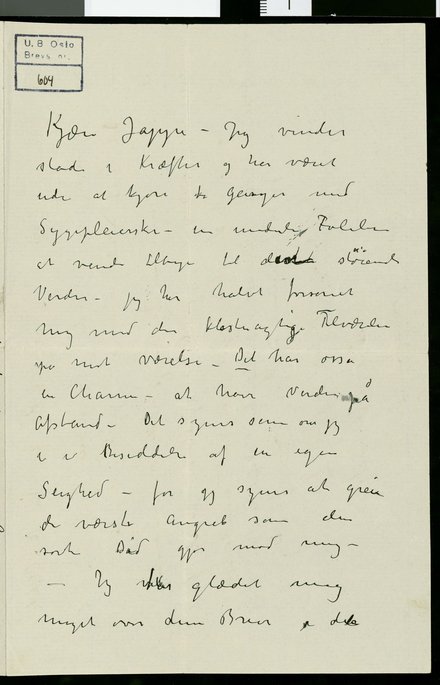 U. B. Oslo
Brevs. nr.
604
Kjære Jappe – Jeg vinder
stadi i Kræfter og har været
ude at kjøre to ganger med
Sygepleierske – en underlig Følelse
at vende tilbage til den støiende
Verden – jeg har halvt forsonet
mig med den klosteragtige Tilværelse
på mit værelse – Det har ossa
en Charme – at have Verden på
afstand – Det synes som om jeg
er i Besiddelse af en egen
Seighed – for jeg synes at greie
de værste angreb som den
sorte Død gjør mod mig –
– Jeg har glædet mig
meget over dine Breve og de